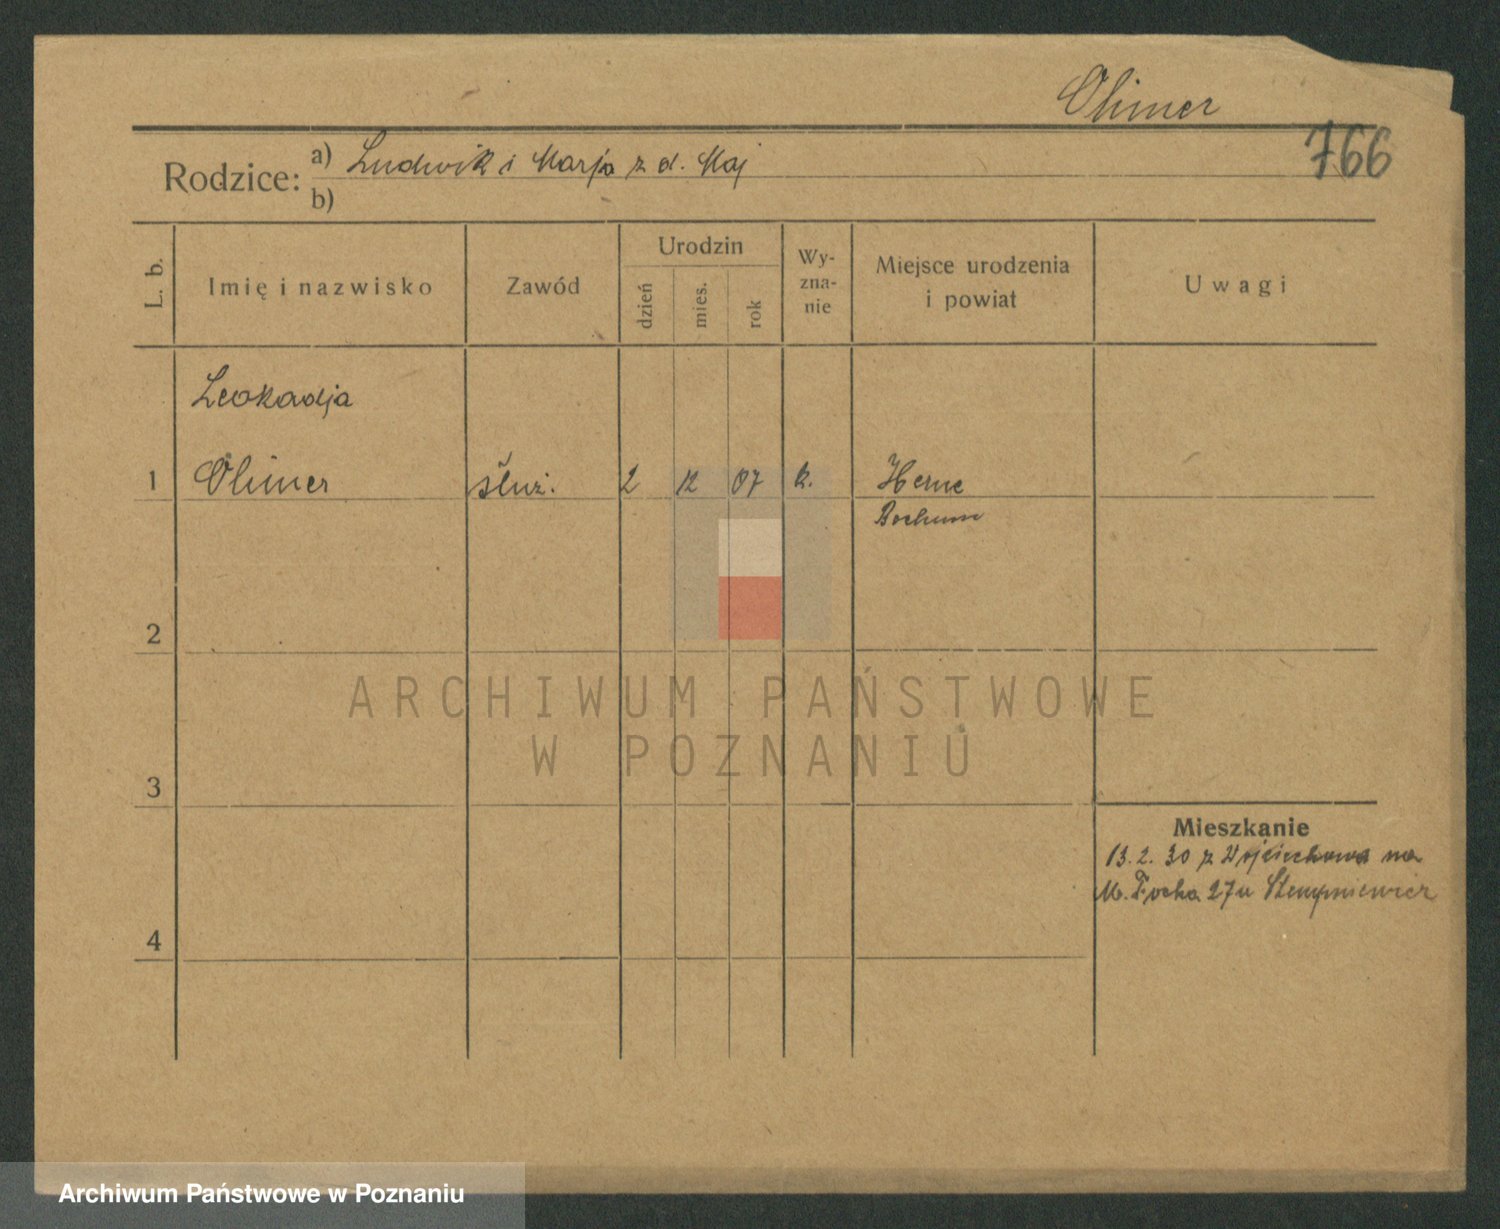 Olimer
766
Rodzice: a) Ludwik i Marja z d. Maj
b)
L. b.
Imię i nazwisko
Zawód
Urodzin
dzień
mies.
rok
Wy-
zna-
nie
Miejsce urodzenia
i powiat
Uwagi
Leokadja
1 Olimer służ. 2 12 07 k. Herne
Bochum
2
3
4
Mieszkanie
13.2.30 z Wojciechowa na
M. Focha 27 u Stempniewicz
ARCHIWUM PAŃSTWOWE
W POZNANIU
Archiwum Państwowe w Poznaniu